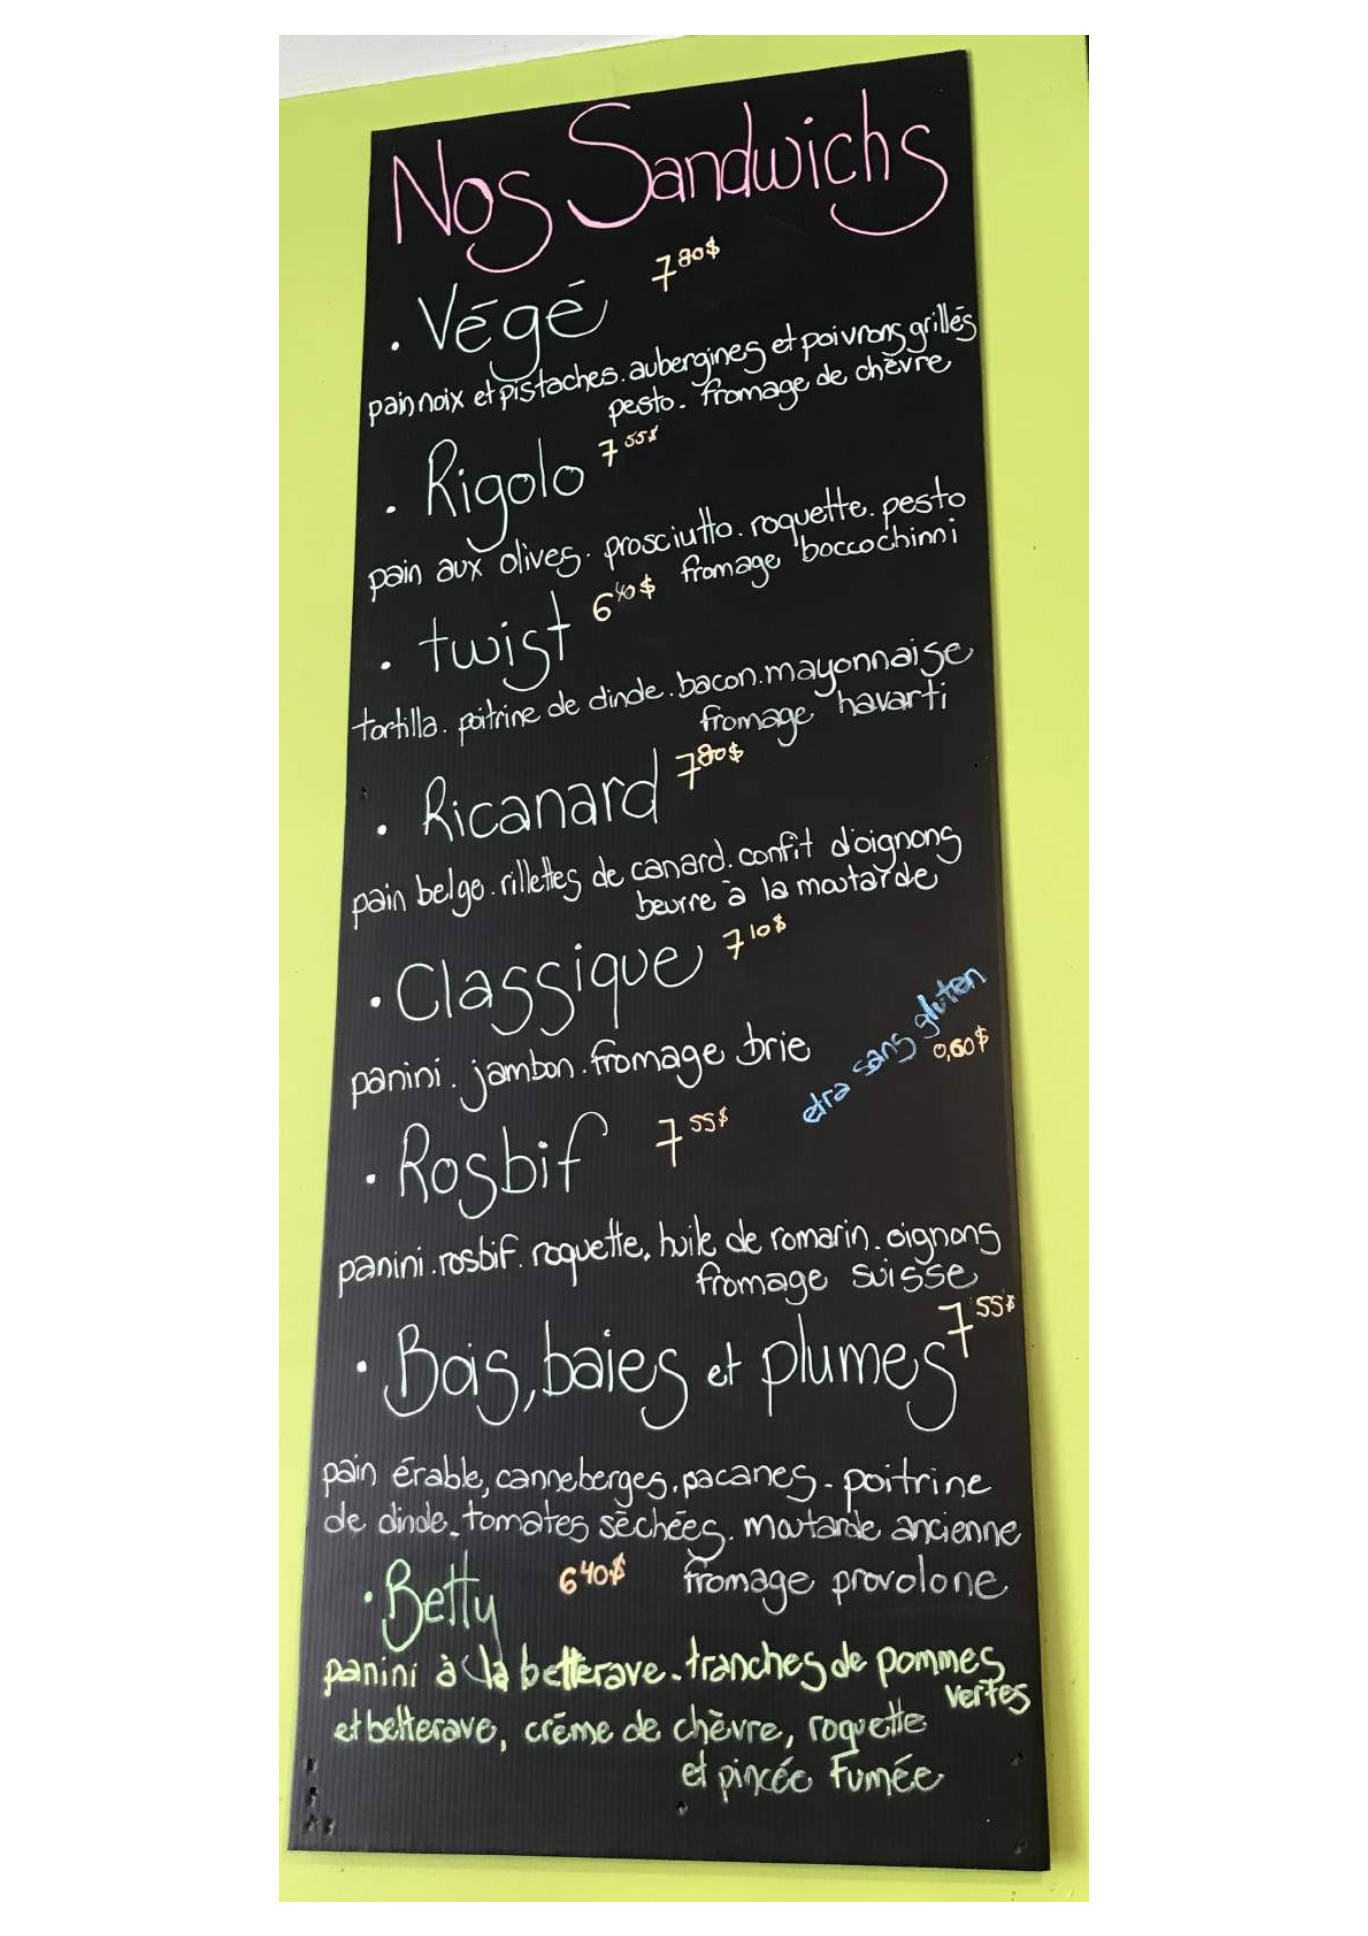 Nos Sandwichs
. Végé 7 80$
pain noix et pistaches. aubergines et poivrons grillés
pesto. fromage de chèvre
. Rigolo 7 55$
pain aux olives. prosciutto. roquette. pesto
fromage boccochinni
. twist 6 40$
tortilla. poitrine de dinde. bacon. mayonnaise
fromage havarti
. Ricanard 7 80$
pain belge. rillettes de canard. confit d'oignons
beurre à la moutarde
. Classique 7 10$
panini. jambon. fromage brie
etra sans gluten
0,60$
. Rosbif 7 55$
panini. rosbif. roquette, huile de romarin. oignons
fromage suisse
. Bois, baies et plumes 7 55$
pain érable, canneberges, pacanes. poitrine
de dinde. tomates séchées. moutarde ancienne
fromage provolone
. Betty 6 40$
panini à la betterave. tranches de pommes
vertes
et betterave, créme de chèvre, roquette
et pincée fumée